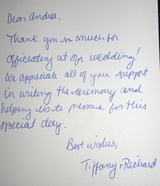 Dear Andrea,
Thank you so much for
officiating at our wedding!
We appreciate all of your support
in writing the ceremony and
helping us to prepare for this
special day.
Best wishes,
Tiffany + Richard